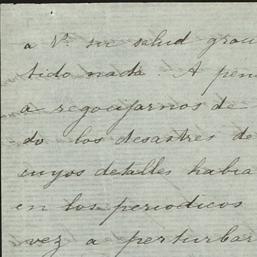 a V. su salud grav
tido nada. A pen
a regocijarnos de
do los desastres de
cuyos detalles habia
en los periodicos
vez a perturbar